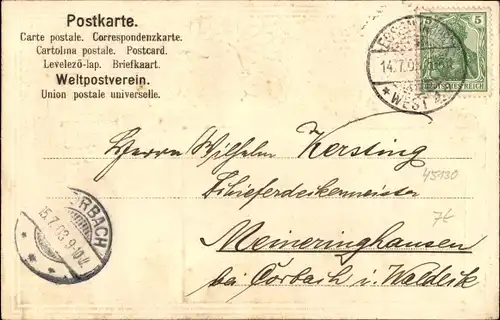 Postkarte.
Carte postale. Correspondenzkarte.
Cartolina postale. Postcard.
Levelező-lap. Briefkaart.
Weltpostverein.
Union postale universelle.
5 5
DEUTSCHES REICH
14.7.03
* WEST 2.
Herrn Wilhelm Kersting
Schieferdeckermeister
45130
7€
Meineringhausen
bei Corbach i. Waldeck
CORBACH
15.7.03.9-10V.